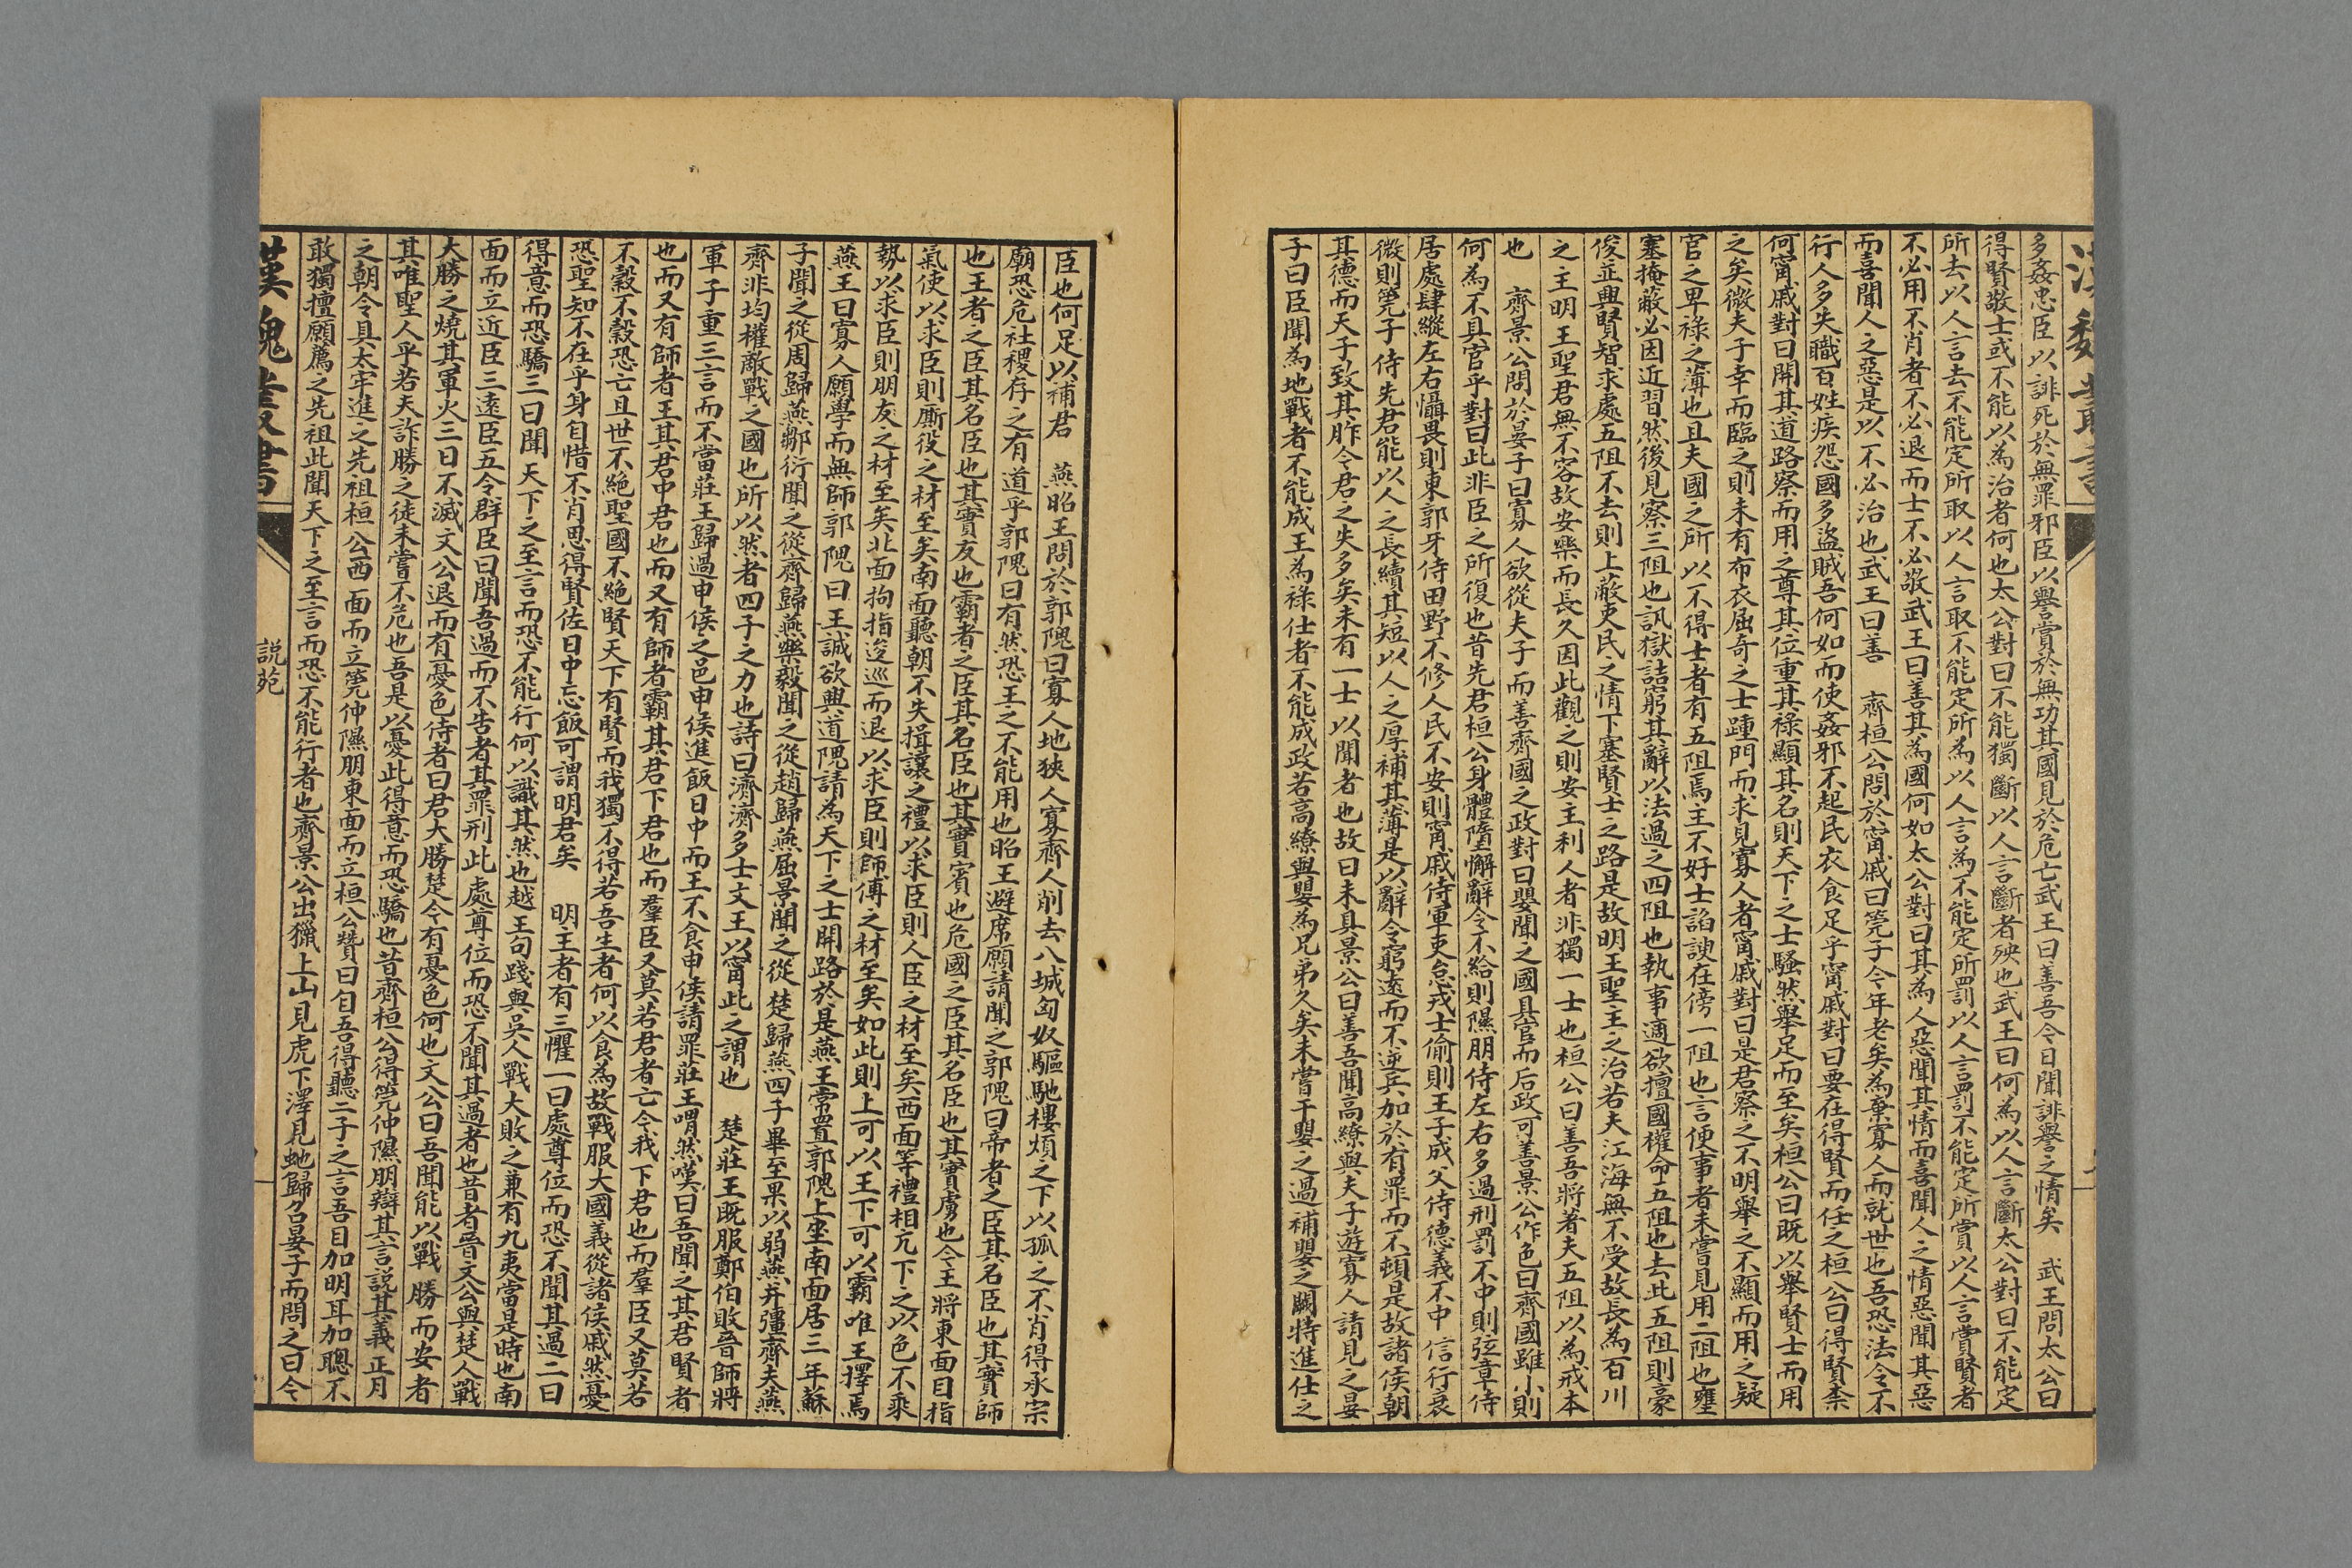 漢魏叢書
多姦忠臣以誹死於無罪邪臣以譽賞於無功其國見於危亡武王曰善吾今日聞誹譽之情矣　武王問太公曰
得賢敬士或不能以為治者何也太公對曰不能獨斷以人言斷者殃也武王曰何為以人言斷太公對曰不能定
所去以人言去不能定所取以人言取不能定所為以人言為不能定所罰以人言罰不能定所賞以人言賞賢者
不必用不肖者不必退而士不必敬武王曰善其為國何如太公對曰其為人惡聞其情而喜聞人之情惡聞其惡
而喜聞人之惡是以不必治也武王曰善　齊桓公問於甯戚曰筦子今年老矣為棄寡人而就世也吾恐法令不
行人多失職百姓疾怨國多盜賊吾何如而使姦邪不起民衣食足乎甯戚對曰要在得賢而任之桓公曰得賢柰
何甯戚對曰開其道路察而用之尊其位重其祿顯其名則天下之士騷然舉足而至矣桓公曰既以舉賢士而用
之矣微夫子幸而臨之則未有布衣屈奇之士踵門而求見寡人者甯戚對曰是君察之不明舉之不顯而用之疑
官之卑祿之薄也且夫國之所以不得士者有五阻焉主不好士諂諛在傍一阻也言便事者未嘗見用二阻也壅
塞掩蔽必因近習然後見察三阻也訊獄詰窮其辭以法過之四阻也執事適欲擅國權命五阻也去此五阻則豪
俊並興賢智求處五阻不去則上蔽吏民之情下塞賢士之路是故明王聖王之治若夫江海無不受故長為百川
之主明王聖君無不容故安樂而長久因此觀之則安主利人者非獨一士也桓公曰善吾將著夫五阻以為戒本
也　齊景公問於晏子曰寡人欲從夫子而善齊國之政對曰嬰聞之國具官而后政可善景公作色曰齊國雖小則
何為不具官乎對曰此非臣之所復也昔先君桓公身體墮懈辭令不給則隰朋侍左右多過刑罰不中則弦章侍
居處肆縱左右懾畏則東郭牙侍田野不修人民不安則甯戚侍軍吏怠戎士偷則王子成父侍德義不中信行衰
微則筦子侍先君能以人之長續其短以人之厚補其薄是以辭令窮遠而不逆兵加於有罪而不頓是故諸侯朝
其德而天子致其胙今君之失多矣未有一士以聞者也故曰未具景公曰善吾聞高繚與夫子遊寡人請見之晏
子曰臣聞為地戰者不能成王為祿仕者不能成政若高繚與嬰為兄弟久矣未嘗干嬰之過補嬰之闕特進仕之
臣也何足以補君　燕昭王問於郭隗曰寡人地狹人寡齊人削去八城匈奴驅馳樓煩之下以孤之不肖得承宗
廟恐危社稷存之有道乎郭隗曰有然恐王之不能用也昭王避席願請聞之郭隗曰帝者之臣其名臣也其實師
也王者之臣其名臣也其實友也霸者之臣其名臣也其實賓也危國之臣其名臣也其實虜也今王將東面目指
氣使以求臣則廝役之材至矣南面聽朝不失揖讓之禮以求臣則人臣之材至矣西面等禮相亢下之以色不乘
勢以求臣則朋友之材至矣北面拘指逡巡而退以求臣則師傅之材至矣如此則上可以王下可以霸唯王擇焉
燕王曰寡人願學而無師郭隗曰王誠欲興道隗請為天下之士開路於是燕王常置郭隗上坐南面居三年蘇
子聞之從周歸燕鄒衍聞之從齊歸燕樂毅聞之從趙歸燕屈景聞之從楚歸燕四子畢至果以弱燕并彊齊夫燕
齊非均權敵戰之國也所以然者四子之力也詩曰濟濟多士文王以甯此之謂也　楚莊王既服鄭伯敗晉師將
軍子重三言而不當莊王歸過申侯之邑申侯進飯日中而王不食申侯請罪莊王喟然嘆曰吾聞之其君賢者
也而又有師者王其君中君也而又有師者霸其君下君也而羣臣又莫若君者亡今我下君也而羣臣又莫若
不穀不穀恐亡且世不絕聖國不絕賢天下有賢而我獨不得若吾生者何以食為故戰服大國義從諸侯戚然憂
恐聖知不在乎身自惜不肖思得賢佐日中忘飯可謂明君矣　明主者有三懼一曰處尊位而恐不聞其過二曰
得意而恐驕三曰聞天下之至言而恐不能行何以識其然也越王句踐與吳人戰大敗之兼有九夷當是時也南
面而立近臣三遠臣五令群臣曰聞吾過而不告者其罪刑此處尊位而恐不聞其過者也昔者晉文公與楚人戰
大勝之燒其軍火三日不滅文公退而有憂色侍者曰君大勝楚今有憂色何也文公曰吾聞能以戰勝而安者
其唯聖人乎若夫詐勝之徒未嘗不危也吾是以憂此得意而恐驕也昔齊桓公得筦仲隰朋辯其言說其義正月
之朝令具太牢進之先祖桓公西面而立筦仲隰朋東面而立桓公贊曰自吾得聽二子之言吾目加明耳加聰不
敢獨擅願薦之先祖此聞天下之至言而恐不能行者也齊景公出獵上山見虎下澤見虵歸召晏子而問之曰今
漢魏叢書
說苑